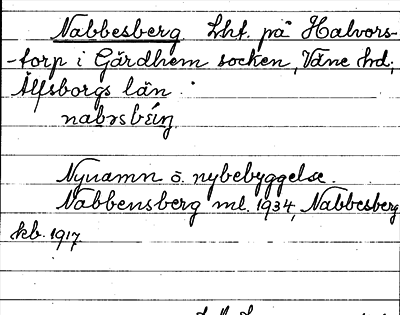 Nabbesberg Lht. på Halvors-
-torp i Gärdhem socken, Väne hd,
Älfsborgs län.
Nynamn o. nybebyggelse.
Nabbensberg ml. 1934, Nabbesberg
kb. 1917.